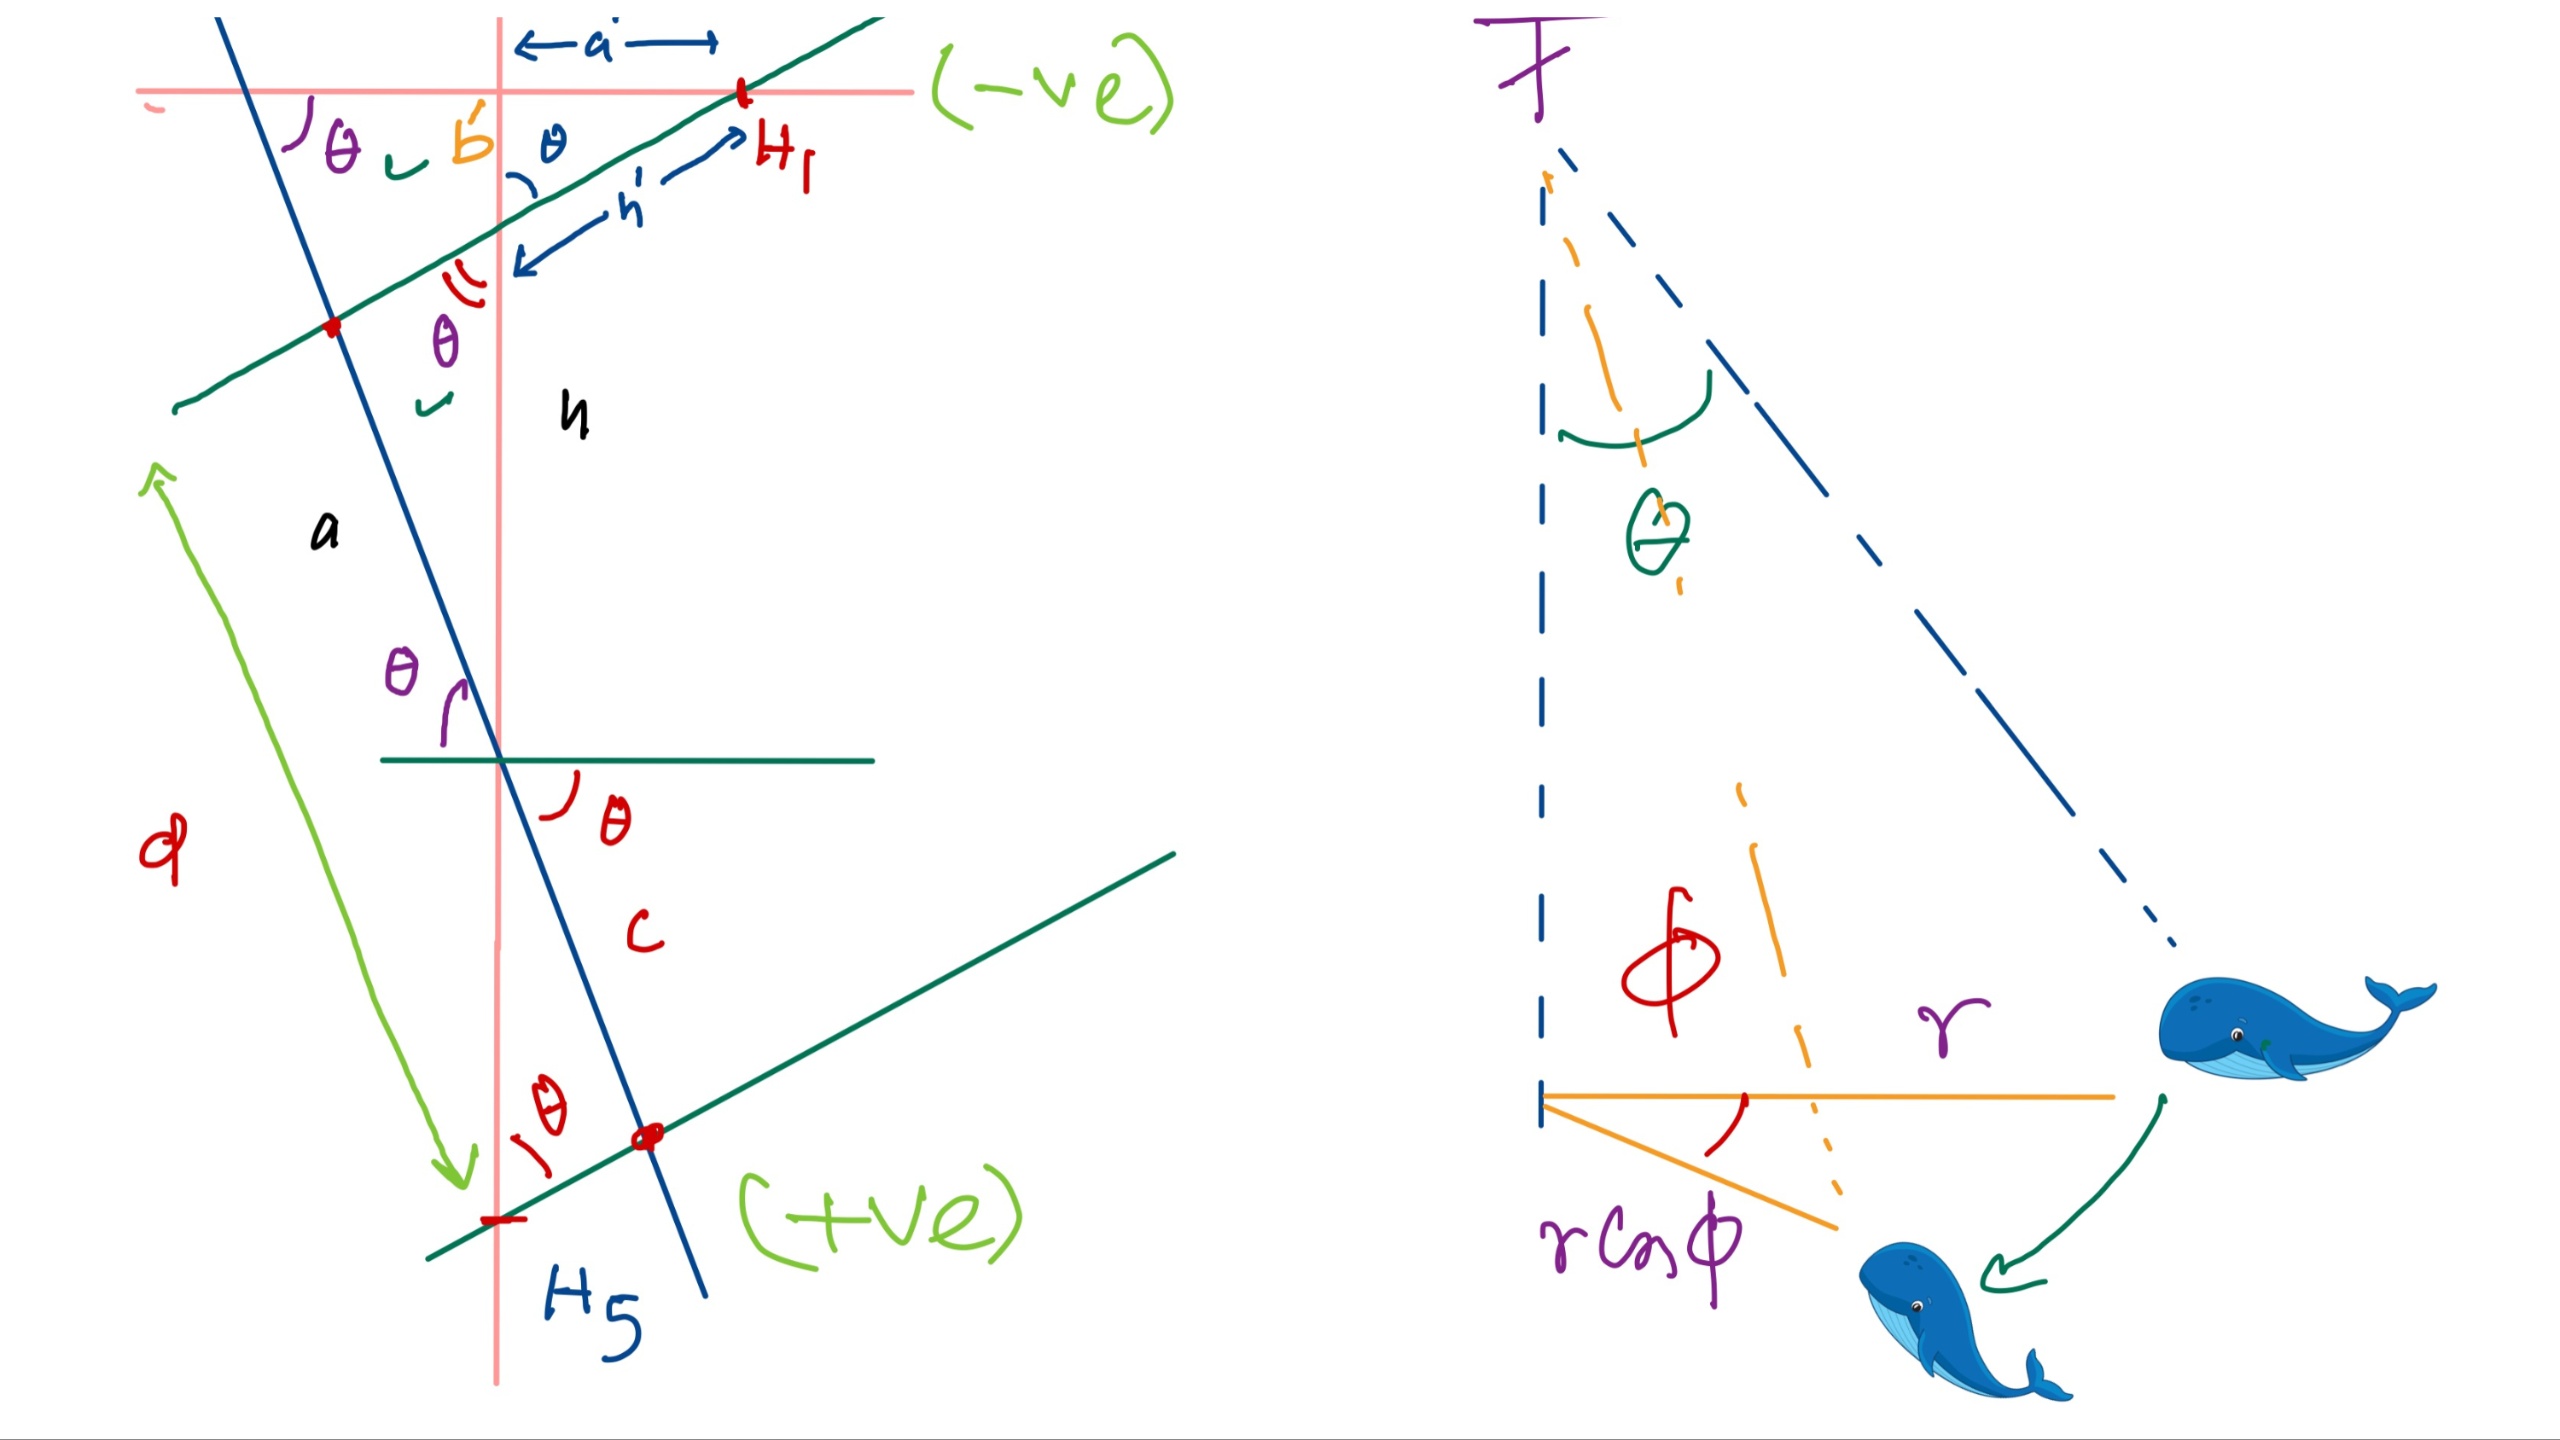 a'
(-ve)
θ
b'
θ
H1
h'
θ
h
a
θ
θ
d
c
θ
(+ve)
H5
θ
ϕ
r
r cos ϕ